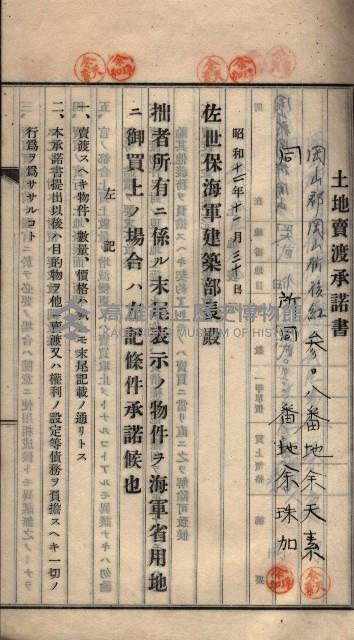 土地賣渡承諾書
岡山郡岡山街後紅參〇八番地余天素
同 所同 番地余珠加
昭和十二年十一月三十日
佐世保海軍建築部長殿
拙者所有ニ係ル末尾表示ノ物件ヲ海軍省用地
ニ御買上ノ場合ハ左記條件承諾候也
左記
一、賣渡スヘキ物件、數量、價格ハ凡テ末尾記載ノ通リトス
二、本承諾書提出以後ハ目的物ヲ他ニ賣渡又ハ權利ノ設定等債務ヲ負擔スヘキ一切ノ
行爲ヲ爲ササルコト
高雄市立歷史博物館
KAOHSIUNG MUSEUM OF HISTORY